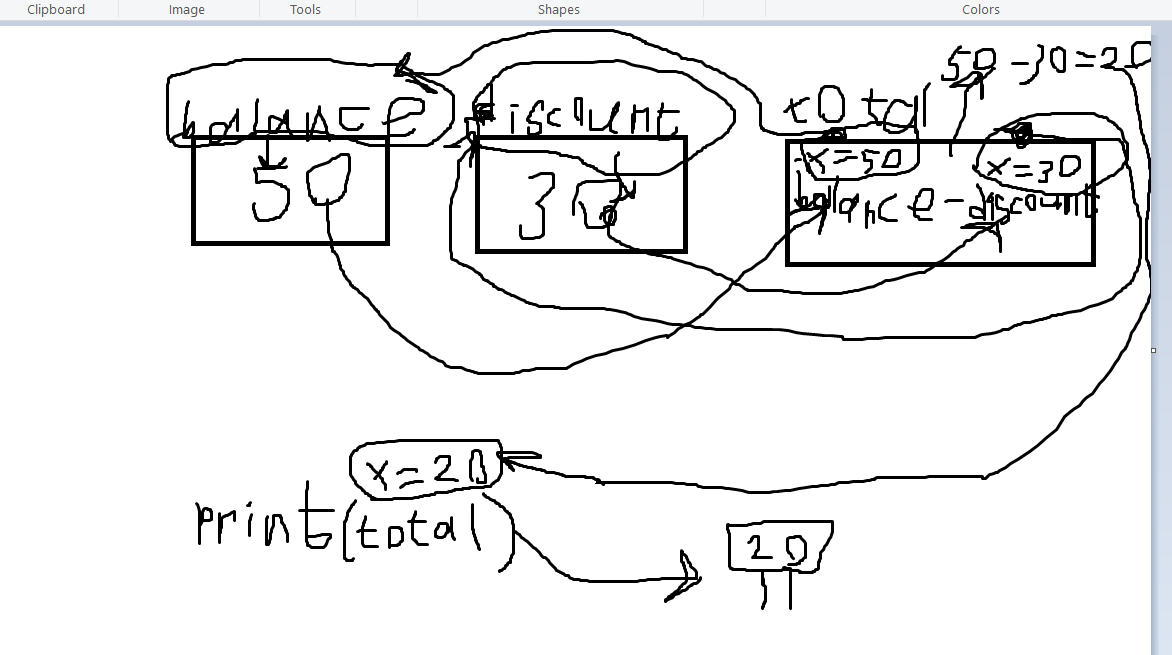 Clipboard Image Tools Shapes Colors
50-30=20
balance discount total
50 30 x=50 x=30
balance-discount
x=20
print(total)
20